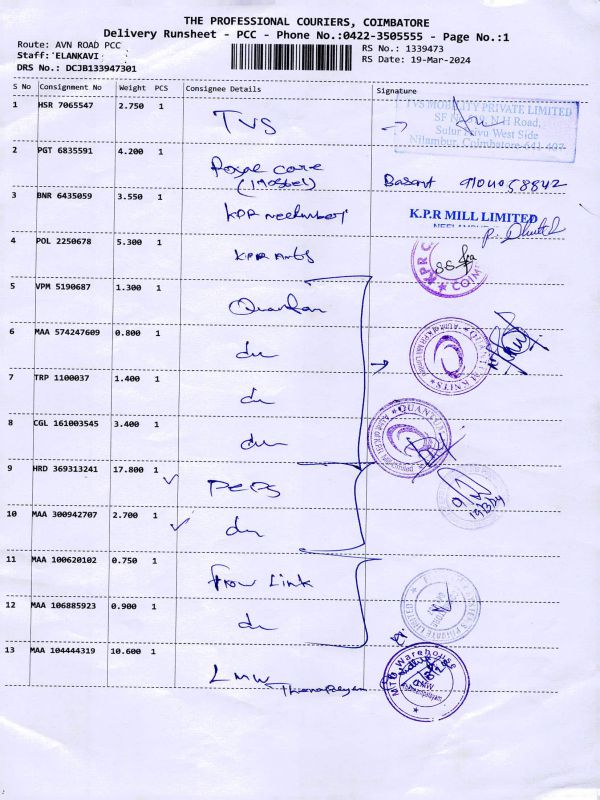 THE PROFESSIONAL COURIERS, COIMBATORE
Delivery Runsheet - PCC - Phone No.:0422-3505555 - Page No.:1
Route: AVN ROAD PCC
RS No.: 1339473
Staff: ELANKAVI
RS Date: 19-Mar-2024
DRS No.: DCJB133947301
S No Consignment No Weight PCS Consignee Details Signature
1 HSR 7065547 2.750 1 TVS
TVS MOBILITY PRIVATE LIMITED
N H Road,
West Side
Coimbatore
2 PGT 6835591 4.200 1 Royal care
(Hostel)
3 BNR 6435059 3.550 1 KPR
K.P.R MILL LIMITED
4 POL 2250678 5.300 1 KPR Arts
KPR C
COIM
5 VPM 5190687 1.300 1
6 MAA 574247609 0.800 1 du
QUANTUM KNITS
7 TRP 1100037 1.400 1 du
8 CGL 161003545 3.400 1 du
QUANTUM
9 HRD 369313241 17.800 1 PEPS
19/3/24
10 MAA 300942707 2.700 1 du
11 MAA 100620102 0.750 1 Link
12 MAA 106885923 0.900 1 du
PRIVATE LIMITED
13 MAA 104444319 10.600 1 LMW
Warehouse
LMW